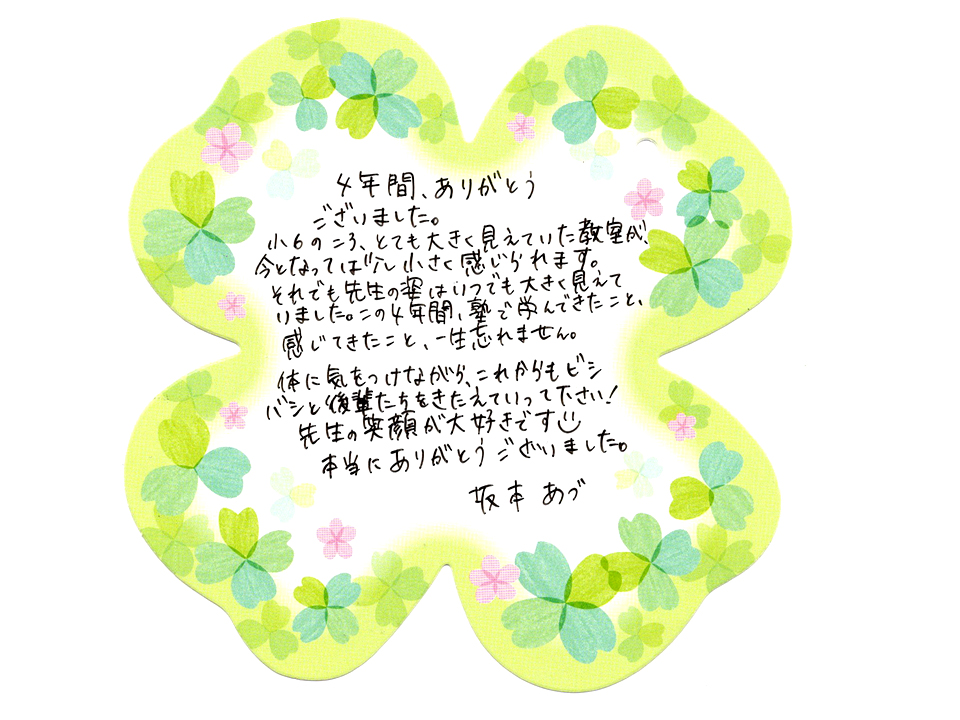 4年間、ありがとう
ございました。
小6のころ、とても大きく見えていた教室が、
今となっては少し小さく感じられます。
それでも先生の姿はいつでも大きく見えて
いました。この4年間、塾で学んできたこと、
感じてきたこと、一生忘れません。
体に気をつけながら、これからもビシ
バシと後輩たちをきたえていって下さい!
先生の笑顔が大好きです
本当にありがとうございました。
坂本 あづ